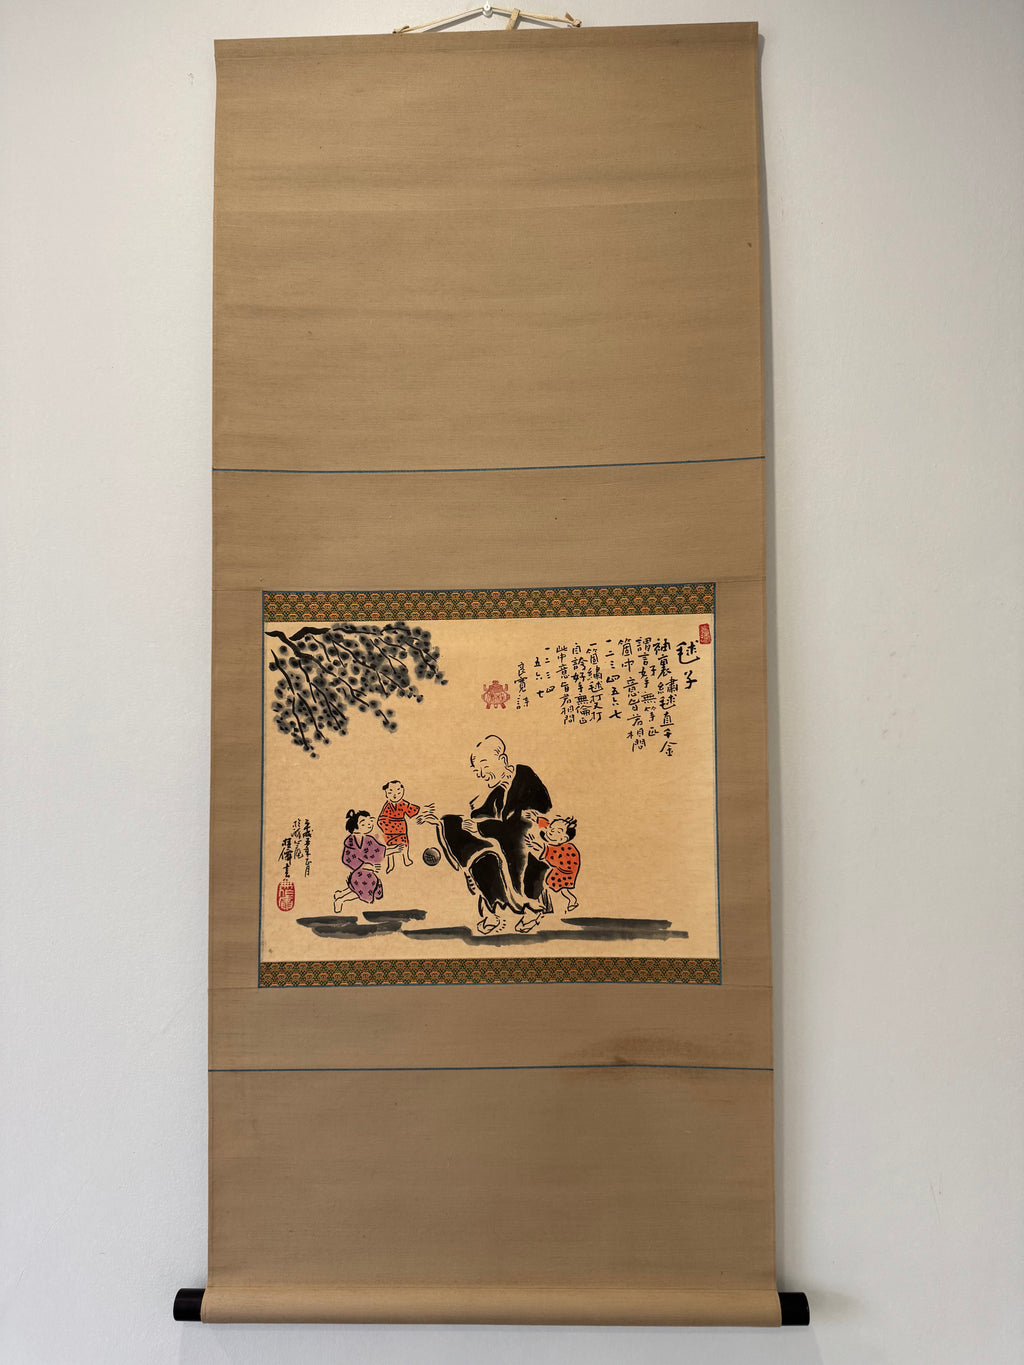 毬子
袖裏繡毬直千金
謂言好手無等匹
箇中意旨若相問
一二三四五六七
一箇繡毬打又打
自誇好手無倫匹
此中意旨若相問
一二三四
五六七
良寛詩